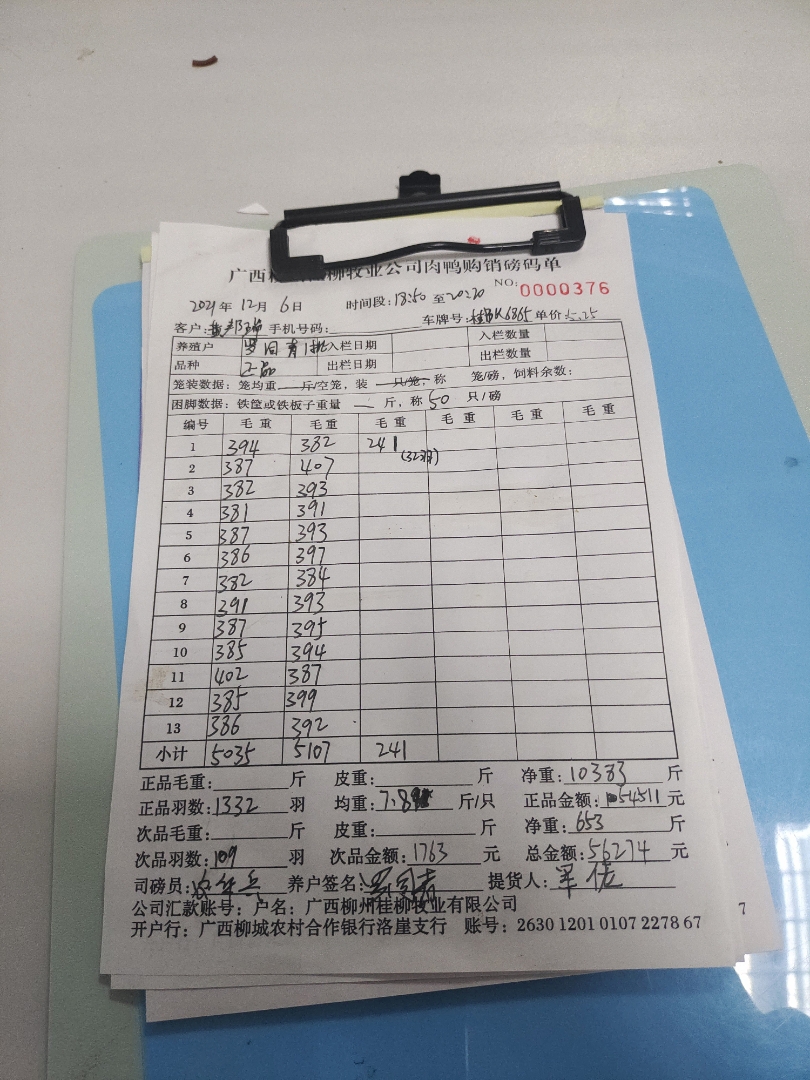 广西柳州桂柳牧业公司肉鸭购销磅码单
NO: 0000376
2021年12月6日 时间段: 18:50 至 20:20
客户: 手机号码: 车牌号: 桂BK6865 单价 5.25
养殖户 入栏日期 入栏数量
品种 正品 出栏日期 出栏数量
笼装数据: 笼均重 斤/空笼, 装 只/笼, 称 笼/磅, 饲料余数:
困脚数据: 铁筐或铁板子重量 — 斤, 称 50 只/磅
编号 毛重 毛重 毛重 毛重 毛重 毛重
1 394 382 241 (32羽)
2 387 407
3 382 393
4 381 391
5 387 393
6 386 397
7 382 384
8 391 393
9 387 395
10 385 394
11 402 387
12 385 399
13 386 392
小计 5035 5107 241
正品毛重: 斤 皮重: 斤 净重: 10383 斤
正品羽数: 1332 羽 均重: 7.8 斤/只 正品金额: 54511 元
次品毛重: 斤 皮重: 斤 净重: 653 斤
次品羽数: 109 羽 次品金额: 1763 元 总金额: 56274 元
司磅员: 养户签名: 提货人:
公司汇款账号: 户名: 广西柳州桂柳牧业有限公司
开户行: 广西柳城农村合作银行洛崖支行 账号: 2630 1201 0107 2278 67
7